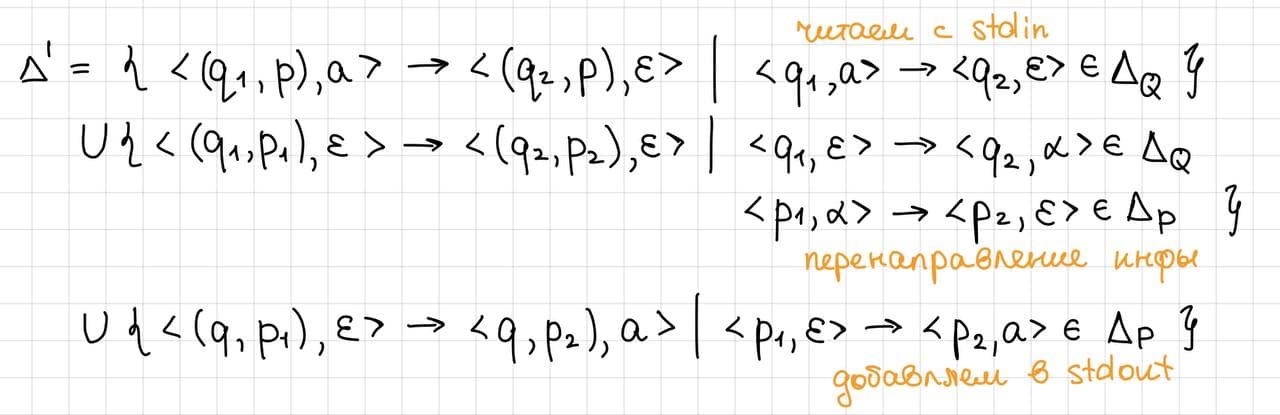 читаем с stdin
Δ' = { <(q₁,p),a> → <(q₂,p),ε> | <q₁,a> → <q₂,ε> ∈ Δ_Q }
∪ { <(q₁,p₁),ε> → <(q₂,p₂),ε> | <q₁,ε> → <q₂,α> ∈ Δ_Q
<p₁,α> → <p₂,ε> ∈ Δ_P }
перенаправление инфы
∪ { <(q,p₁),ε> → <q,p₂),a> | <p₁,ε> → <p₂,a> ∈ Δ_P }
добавляем в stdout